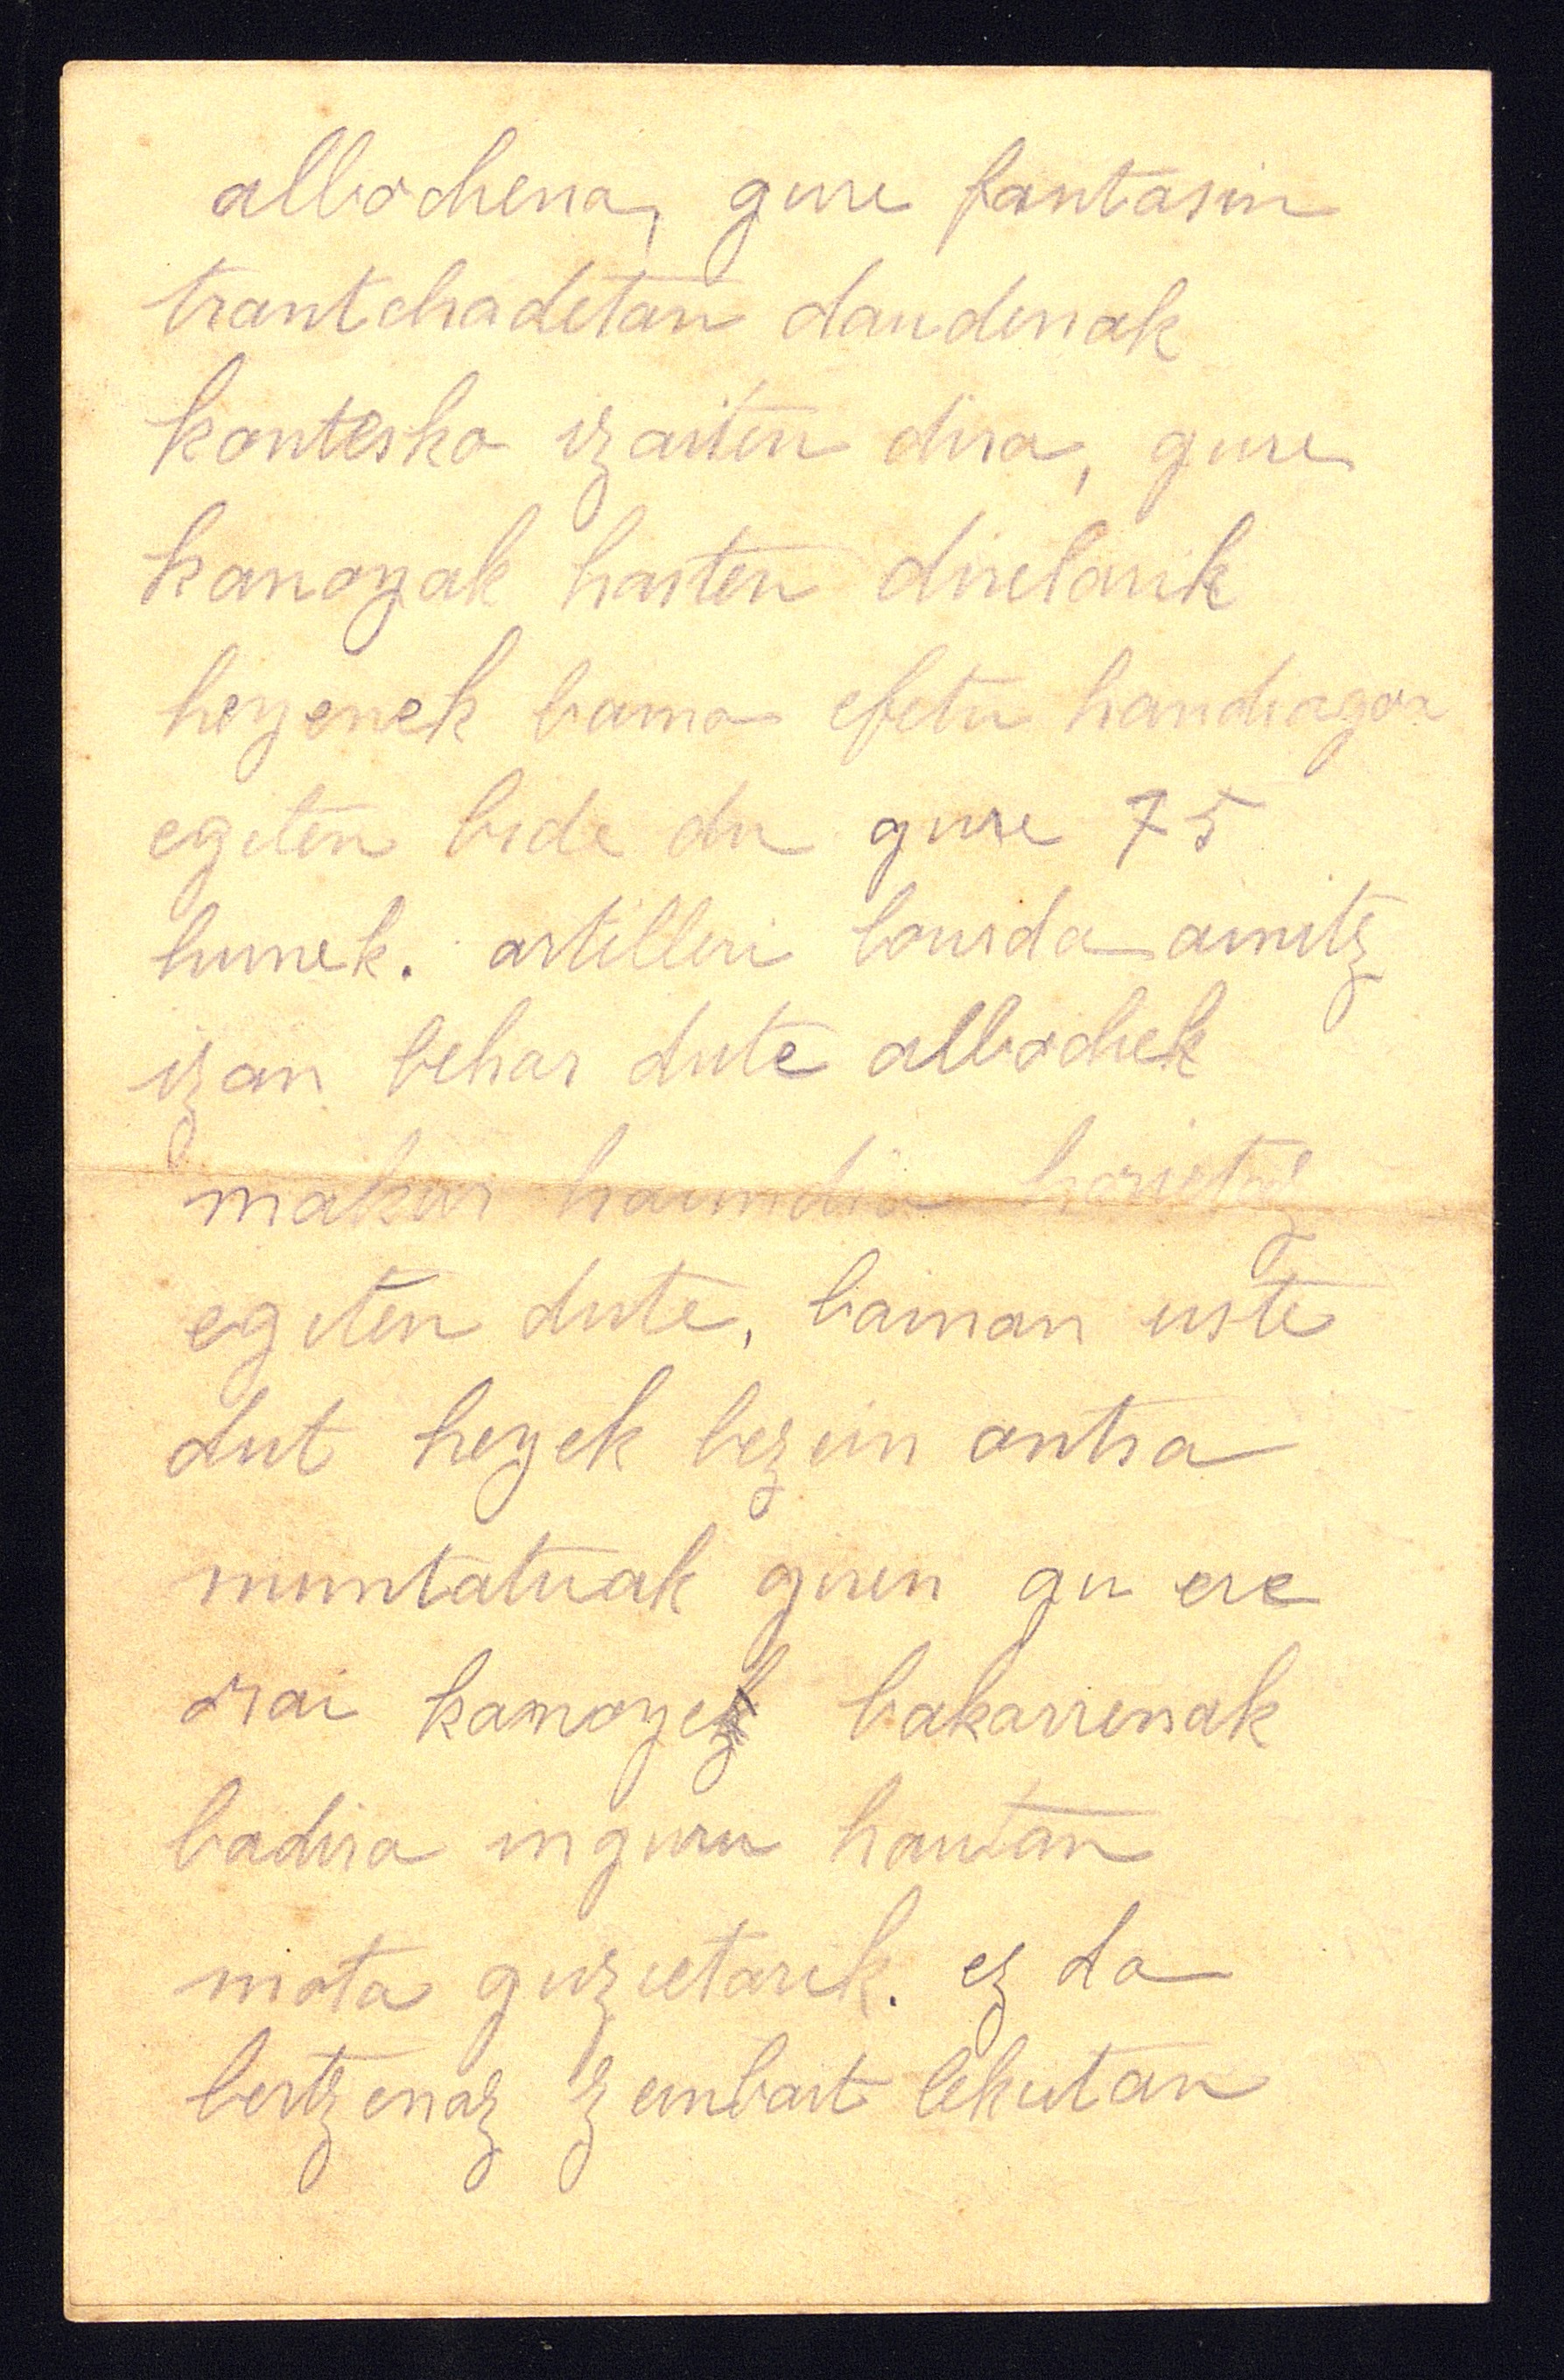 albochena, gure fantasin
trantchadetan daudenak
kontesko izaiten dira, gure
kanoyak hasten direlarik
heyenek bamo efetu handiagoa
egiten bide du gure 75
hunek. artilleri lourda ainitz
izan behar dute albochek
makur haundia horietaz
egiten dute, bainan uste
dut heyek bezein ontsa
muntatuak giren gu ere
orai kanoyez bakarrenak
badira inguru hautan
mota guzietarik. ez da
bertzenaz zeinbait lekutan